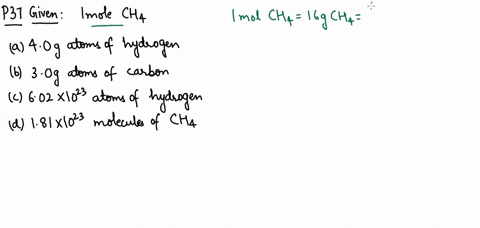 P37 Given: 1mole CH4
1 mol CH4 = 16g CH4 =
(a) 4.0g atoms of hydrogen
(b) 3.0g atoms of carbon
(c) 6.02 ×10²³ atoms of hydrogen
(d) 1.81 ×10²³ molecules of CH4